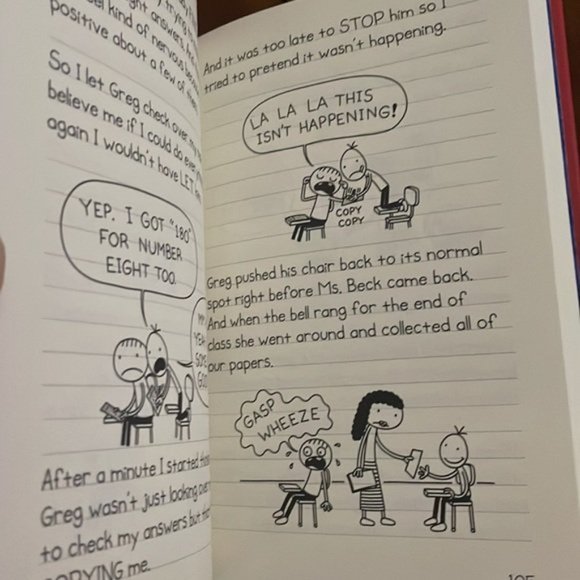 ght answers.
kind of nervous
positive about a few of
So I let Greg check over
believe me if I could do
again I wouldn't have LET
YEP. I GOT "180"
FOR NUMBER
EIGHT TOO.
After a minute I started
Greg wasn't just looking
to check my answers but
COPYING me.
And it was too late to STOP him so I
tried to pretend it wasn't happening.
LA LA LA THIS
ISN'T HAPPENING!
COPY
COPY
Greg pushed his chair back to its normal
spot right before Ms. Beck came back.
And when the bell rang for the end of
class she went around and collected all of
our papers.
GASP
WHEEZE